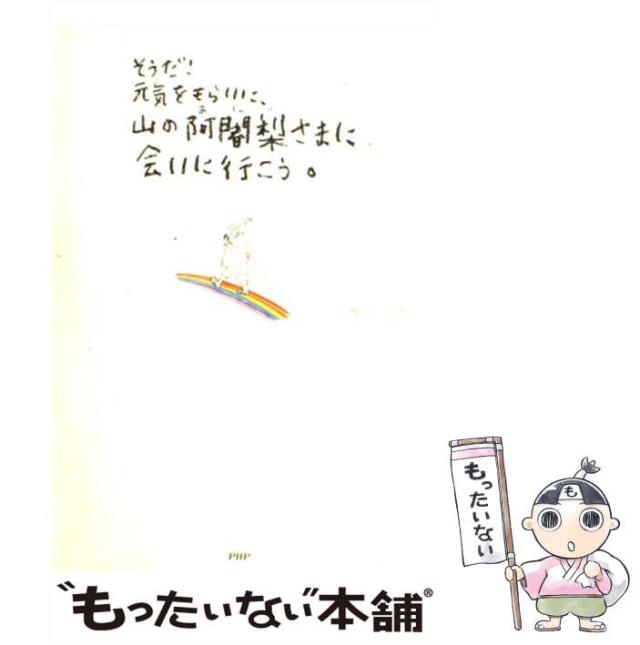 そうだ!
元気をもらいに、
山の阿闍梨さまに
会いに行こう。
PHP
もったいない
も
"もったいない"本舗®